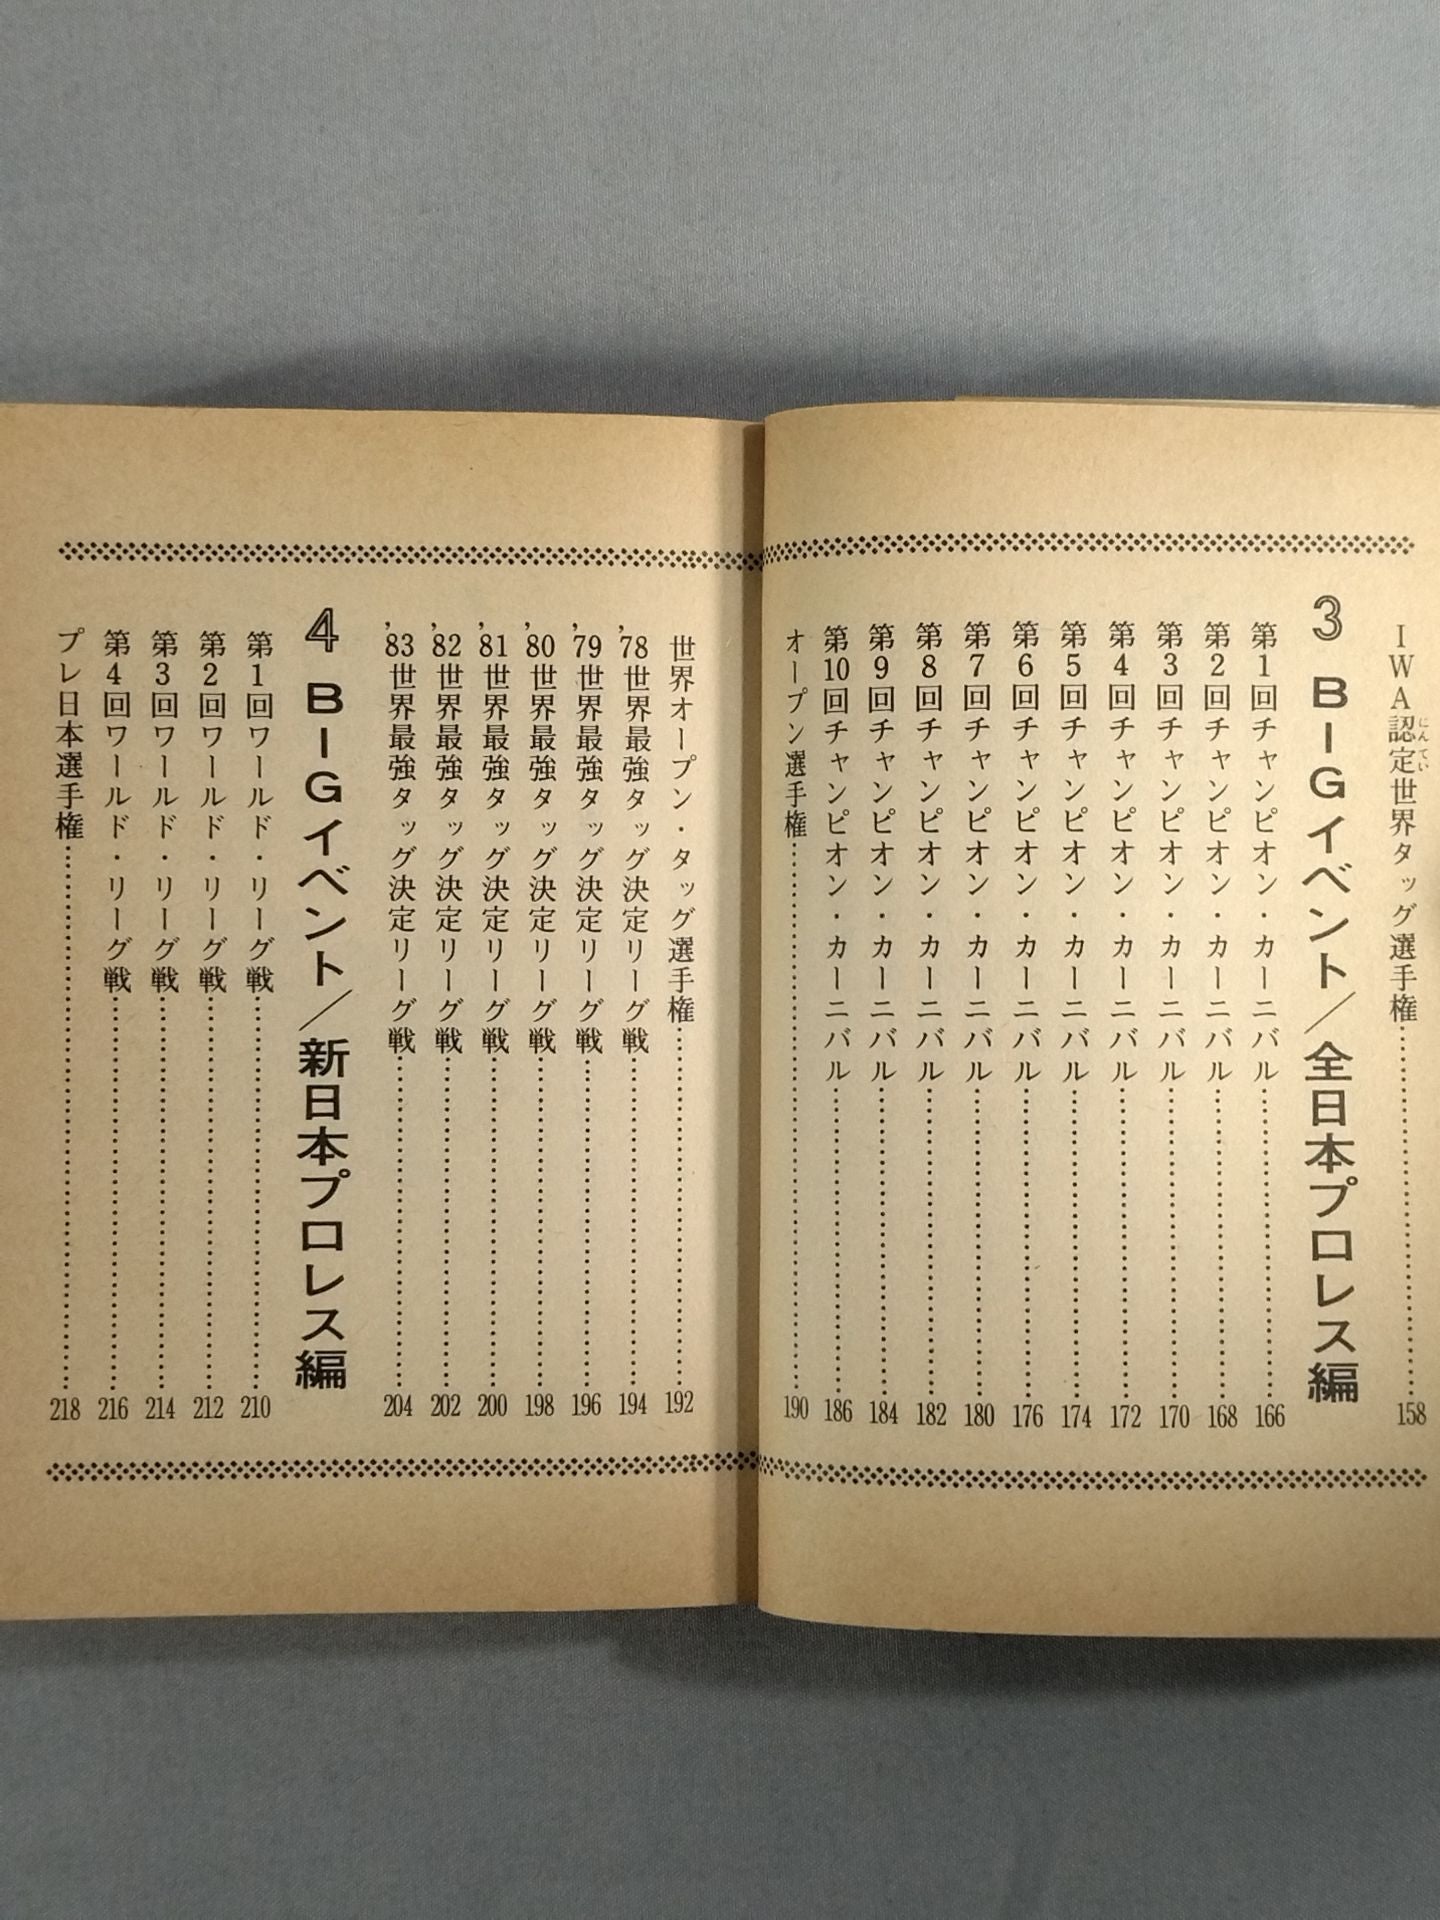 IWA認定世界タッグ選手権……158
にんてい
3 BIGイベント／全日本プロレス編
第1回チャンピオン・カーニバル……166
第2回チャンピオン・カーニバル……168
第3回チャンピオン・カーニバル……170
第4回チャンピオン・カーニバル……172
第5回チャンピオン・カーニバル……174
第6回チャンピオン・カーニバル……176
第7回チャンピオン・カーニバル……180
第8回チャンピオン・カーニバル……182
第9回チャンピオン・カーニバル……184
第10回チャンピオン・カーニバル……186
オープン選手権……190
世界オープン・タッグ選手権……192
'78世界最強タッグ決定リーグ戦……194
'79世界最強タッグ決定リーグ戦……196
'80世界最強タッグ決定リーグ戦……198
'81世界最強タッグ決定リーグ戦……200
'82世界最強タッグ決定リーグ戦……202
'83世界最強タッグ決定リーグ戦……204
4 BIGイベント／新日本プロレス編
第1回ワールド・リーグ戦……210
第2回ワールド・リーグ戦……212
第3回ワールド・リーグ戦……214
第4回ワールド・リーグ戦……216
プレ日本選手権……218